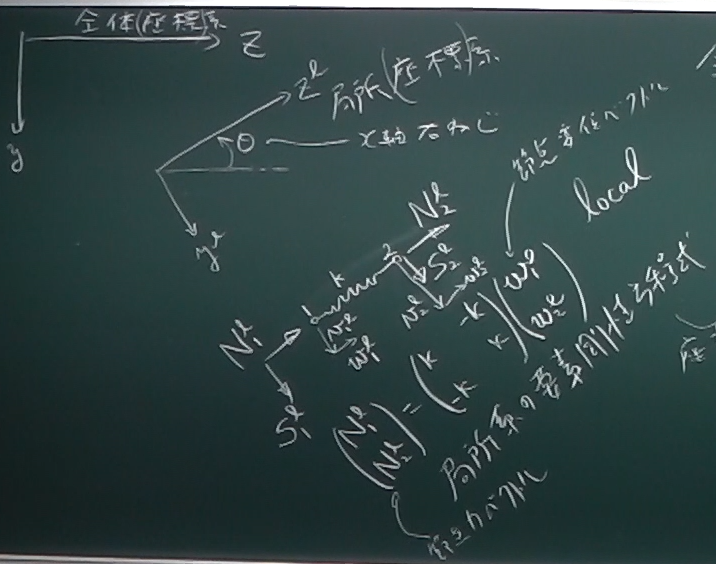 全体(座標)系
z
y
z^l 局所(座標)系
θ x軸右ねじ
y^l
節点変位ベクトル
local
N_2^l
k 2 S_2^l
1 v_1^l v_2^l w_2^l
w_1^l
N_1^l
S_1^l
(N_1^l N_2^l) = (k -k -k k)(w_1^l w_2^l)
局所系の要素剛性方程式
節点力ベクトル
座